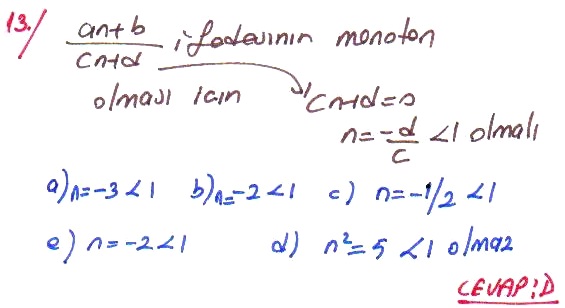 13./ an+b / cn+d ifadesinin monoton
olması için cn+d=0
n=-d/c <1 olmalı
a) n=-3<1 b) n=-2<1 c) n=-1/2 <1
e) n=-2<1 d) n²=5 <1 olmaz
CEVAP:D